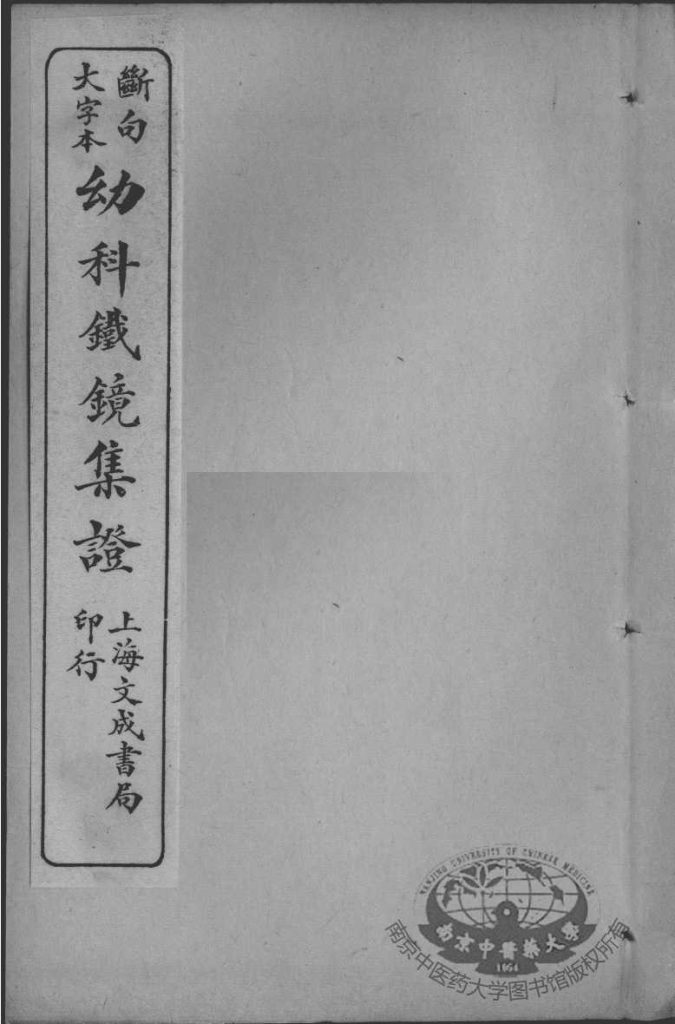 斷句
大字本
幼科鐵鏡集證
上海文成書局
印行
NANJING UNIVERSITY OF CHINESE MEDICINE
南京中醫藥大學
1954
南京中医药大学图书馆版权所有